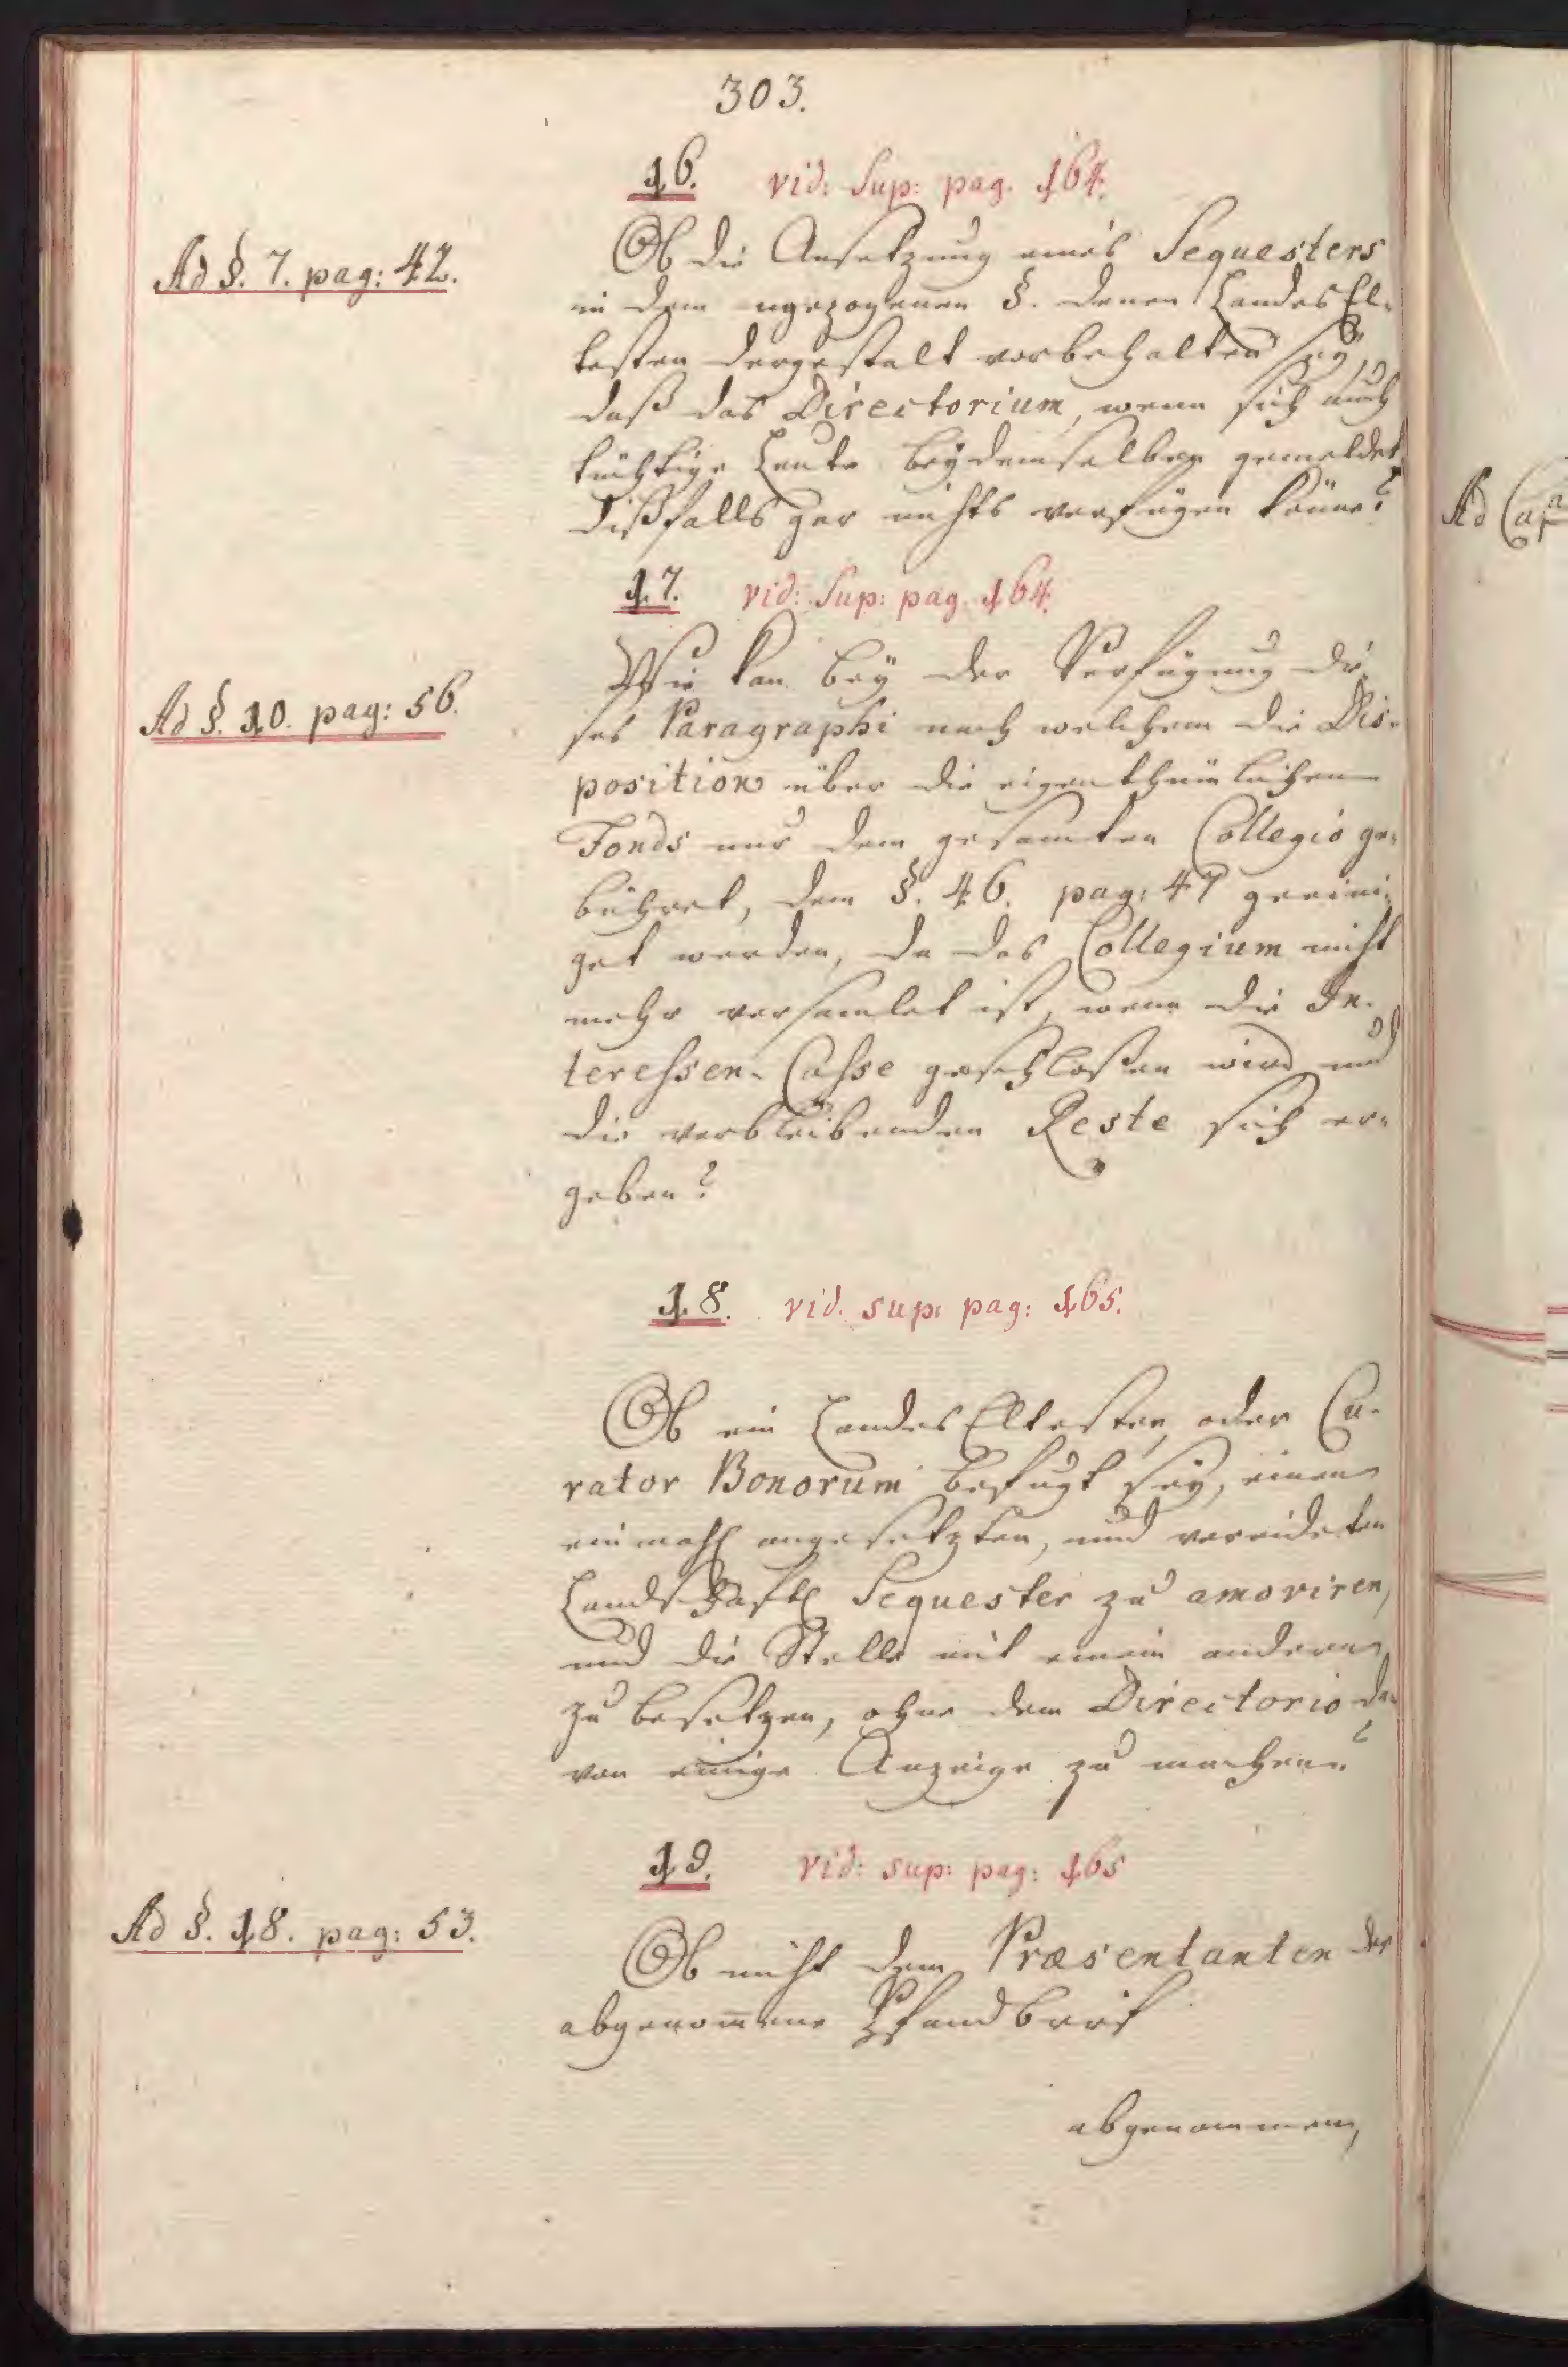 303.
16. vid: Sup: pag. 164.
Ad §. 7. pag: 42.
Ob die Ansetzung eines Sequesters
in dem angezogenen §. denen Landes El-
testen dergestalt vorbehalten sey,
daß das Directorium, wenn sich auch
tüchtige Leute bey demselben gemeldet
dißfalls gar nichts verfügen könne?
17. vid: Sup: pag. 164.
Ad §. 10. pag: 56.
Wie kan bey der Verfügung die-
ses Paragraphi nach welchem die Dis-
position über die eigenthümlichen
Fonds nur dem gesamten Collegio ge-
bühret, dem §. 46. pag: 47 geeini-
get werden, da das Collegium nicht
mehr versamlet ist, wenn die In-
teressen-Casse geschlossen wird und
die verbleibenden Reste sich er-
geben?
18. vid. sup: pag: 165.
Ob ein Landes Eltester, oder Cu-
rator Bonorum befugt sey, einen
einmahl angesetzten, und vereideten
Landschaftl Sequester zu amoviren,
und die Stelle mit einem andern
zu besetzen, ohne dem Directorio da-
von einige Anzeige zu machen?
19. vid: sup: pag: 165
Ad §. 18. pag: 53.
Ob nicht dem Præsentanten der
abgenom̄ene Pfandbrief
abgenommen,
Ad Cap